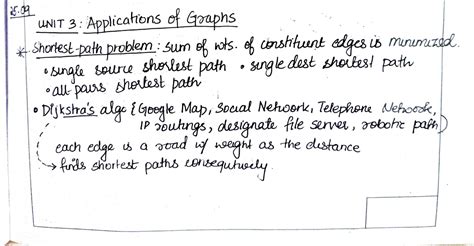 25.09
UNIT 3: Applications of Graphs
* Shortest-path problem: sum of wts. of constituent edges is minimized.
• single source shortest path • single dest shortest path
• all pairs shortest path
• Dijkstra's algo {Google Map, Social Network, Telephone Network,
IP routings, designate file server, robotic path}
each edge is a road w/ weight as the distance
→ finds shortest paths consequtively.